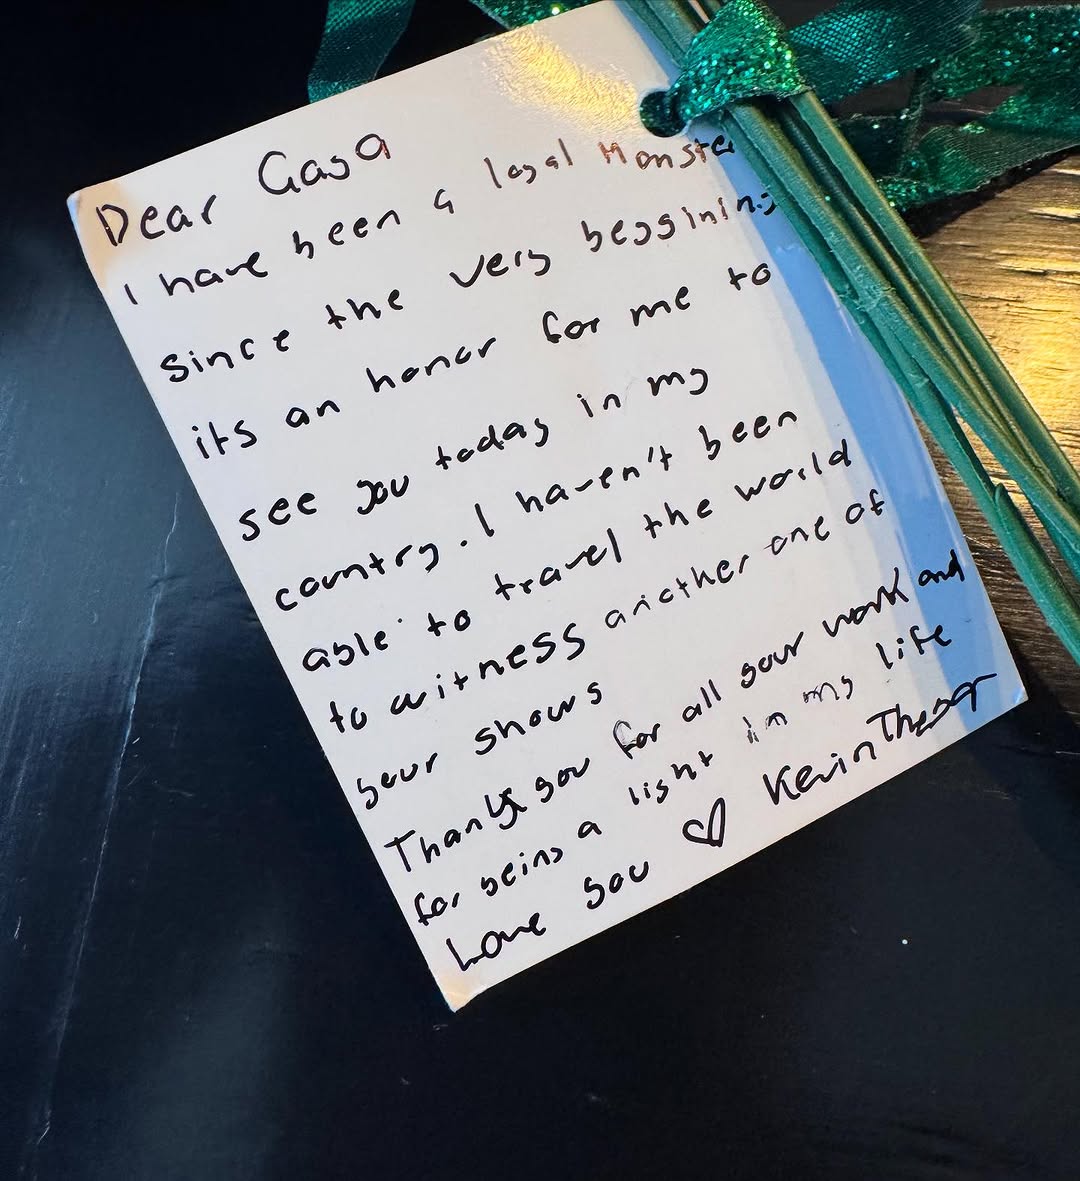 Dear Gaga
I have been a loyal Monster
since the very beggining
its an honor for me to
see you today in my
country. I haven't been
able to travel the world
to witness another one of
your shows
Thank you for all your work and
for being a light in my life
Love you ♡ Kevin